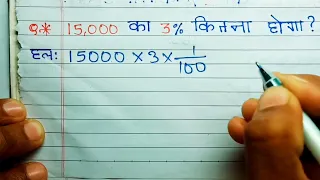 Q* 15,000 का 3% कितना होगा?
हल: 15000 × 3 × 1/100